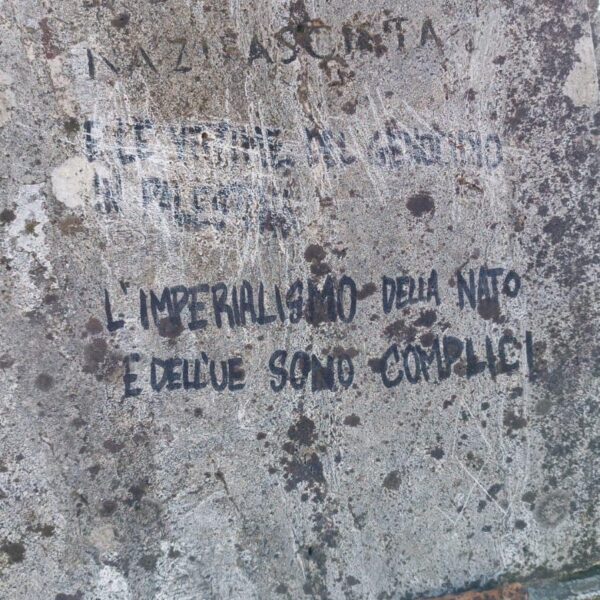 NAZIFASCISTA
E LE VITTIME DEL GENOCIDIO
IN PALESTINA
L'IMPERIALISMO DELLA NATO
E DELL'UE SONO COMPLICI